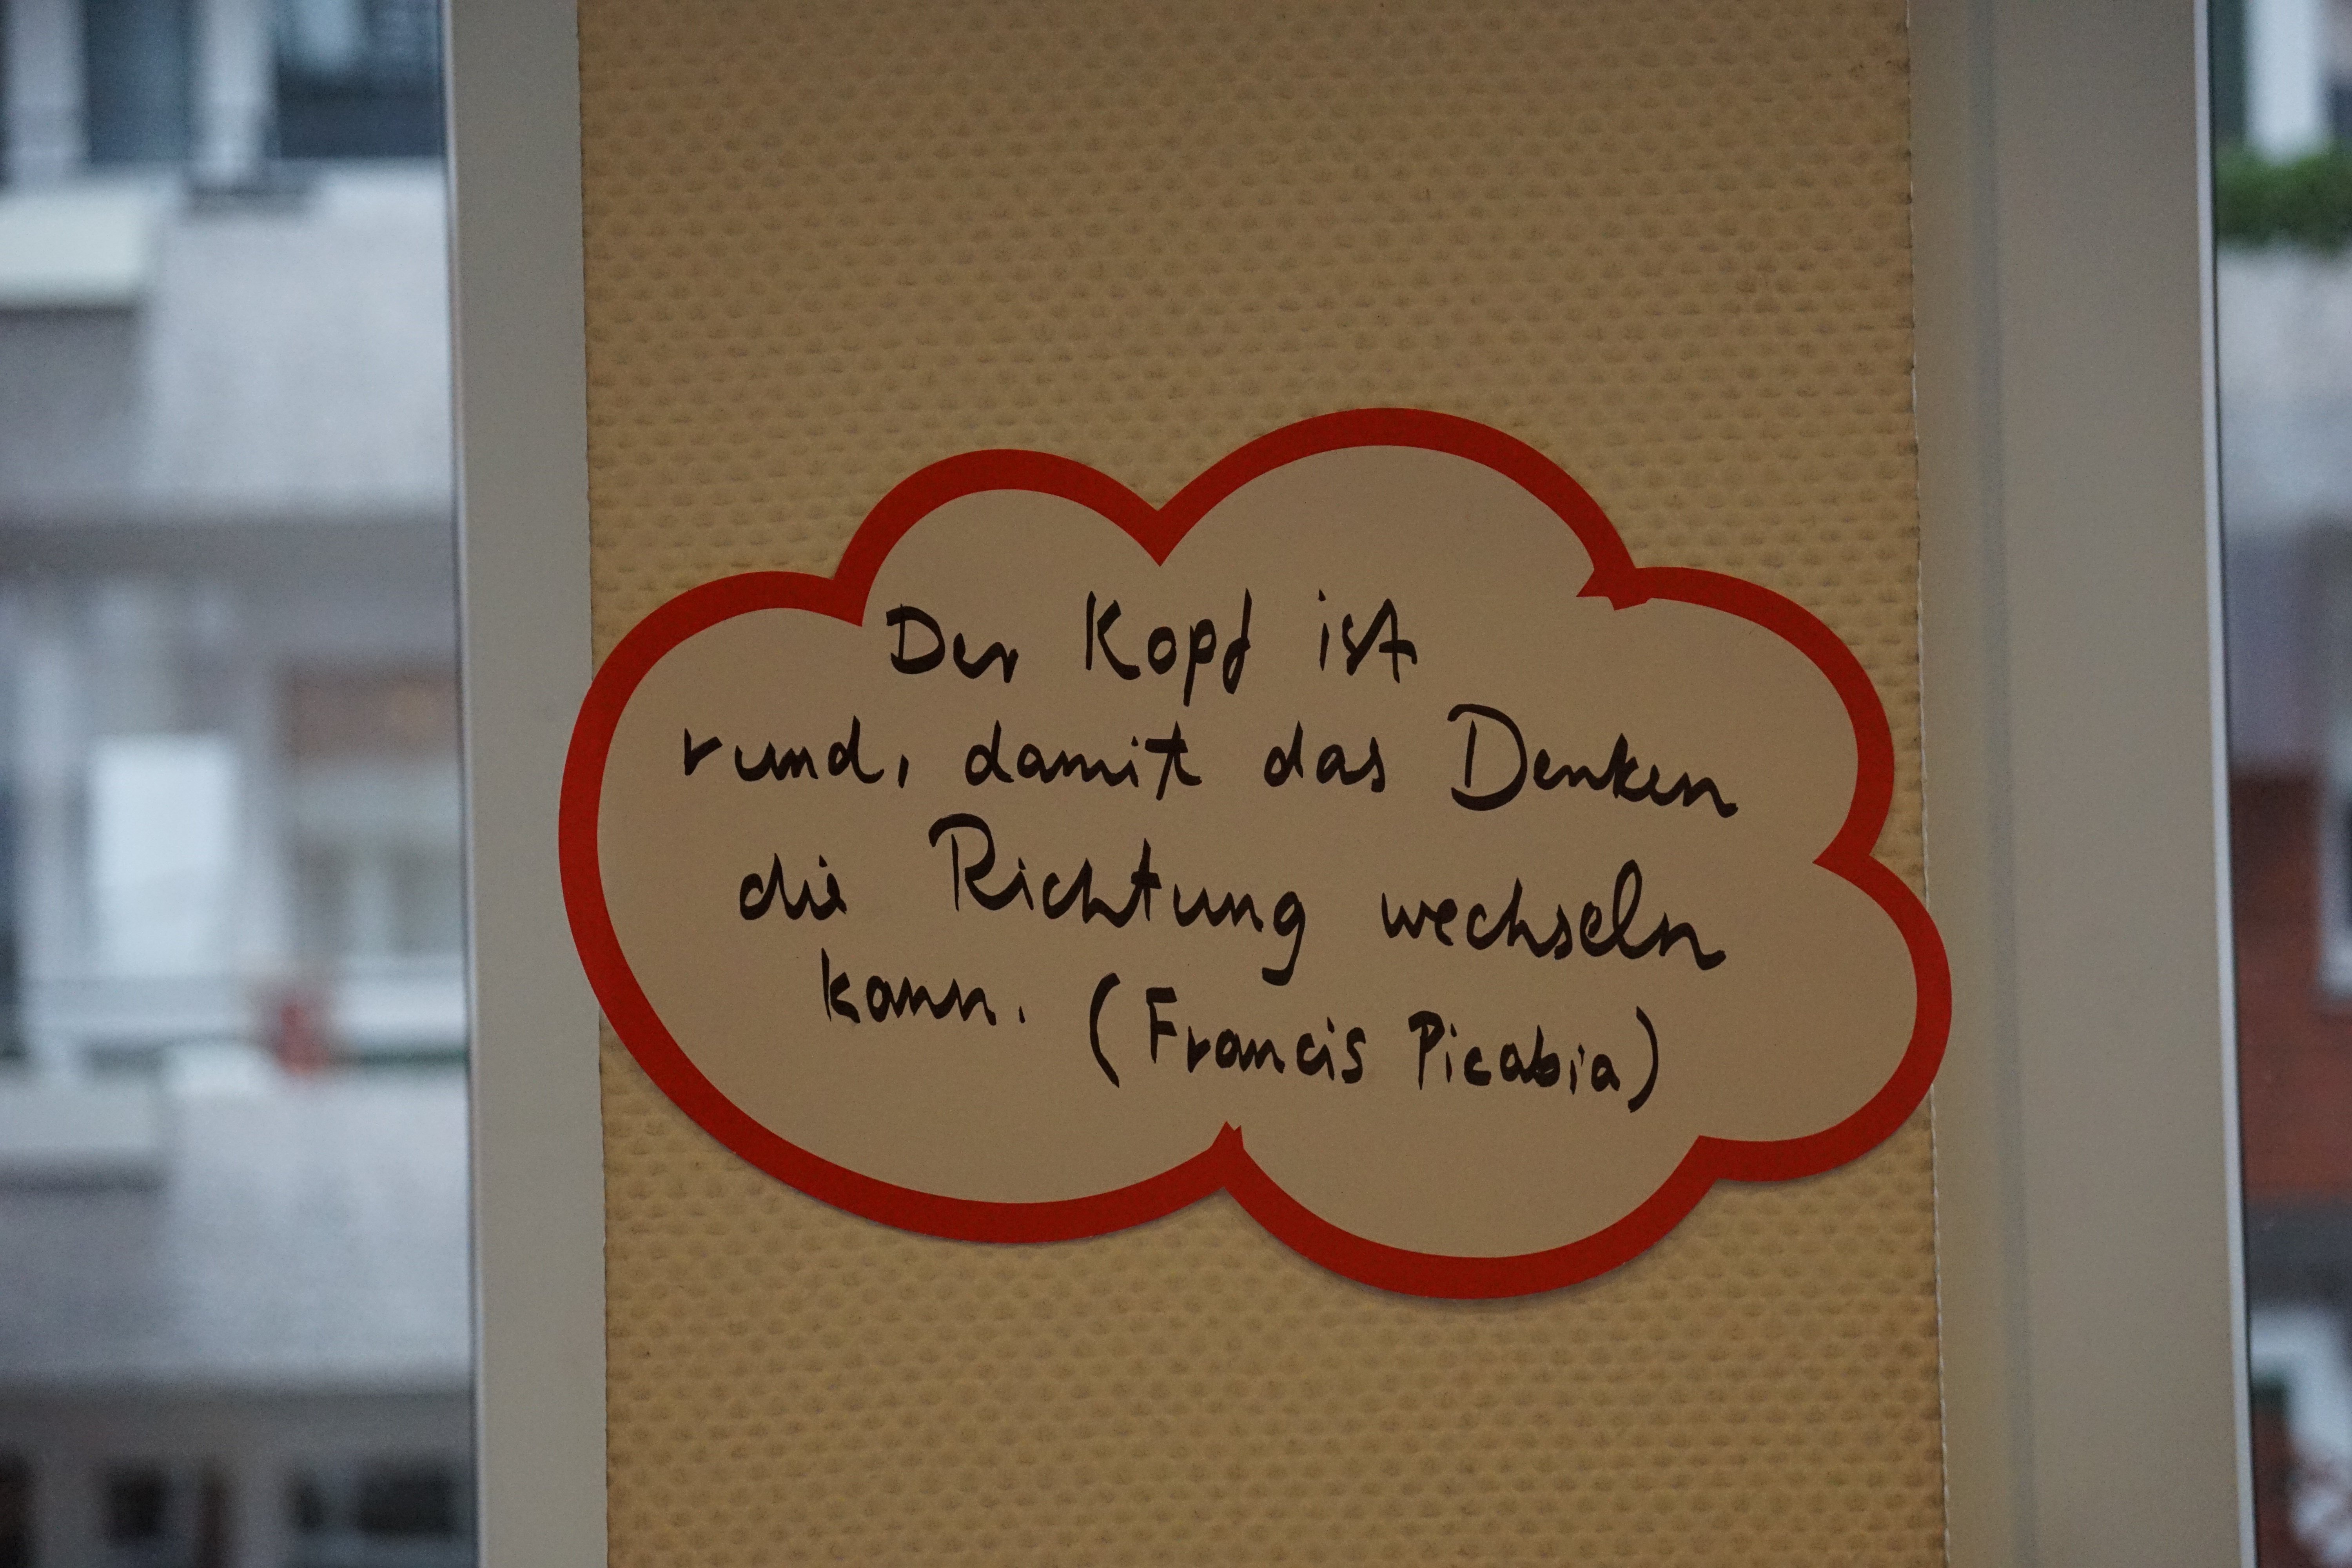 Der Kopf ist
rund, damit das Denken
die Richtung wechseln
kann. (Francis Picabia)